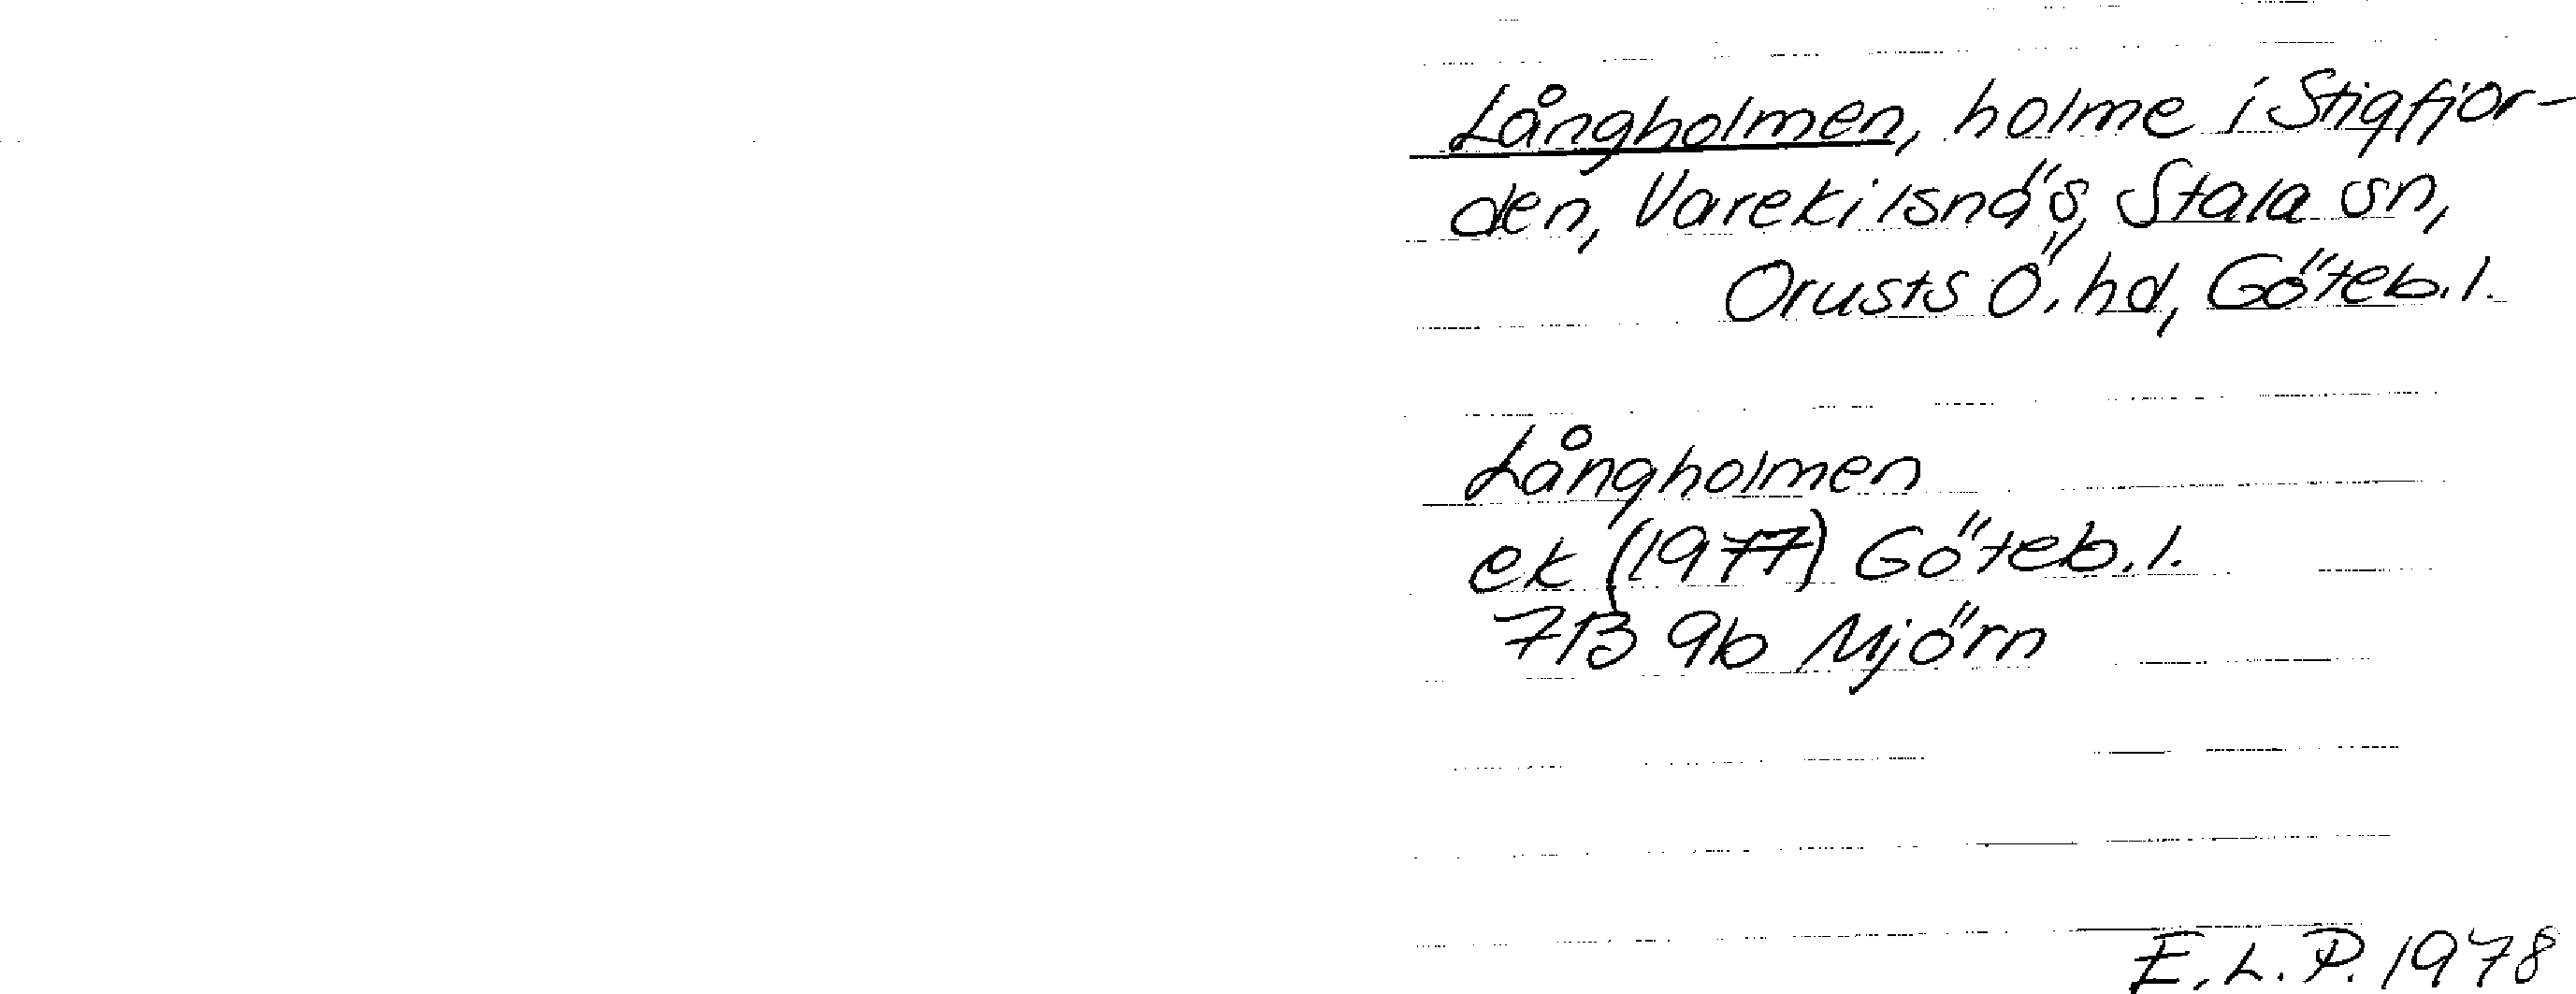 Långholmen, holme i Stigfjor-
den, Varekilsnäs, Stala sn,
Orusts Ö. hd, Göteb. l.
Långholmen
ek (1977) Göteb. l.
7B 9b Mjörn
E. L. P. 1978